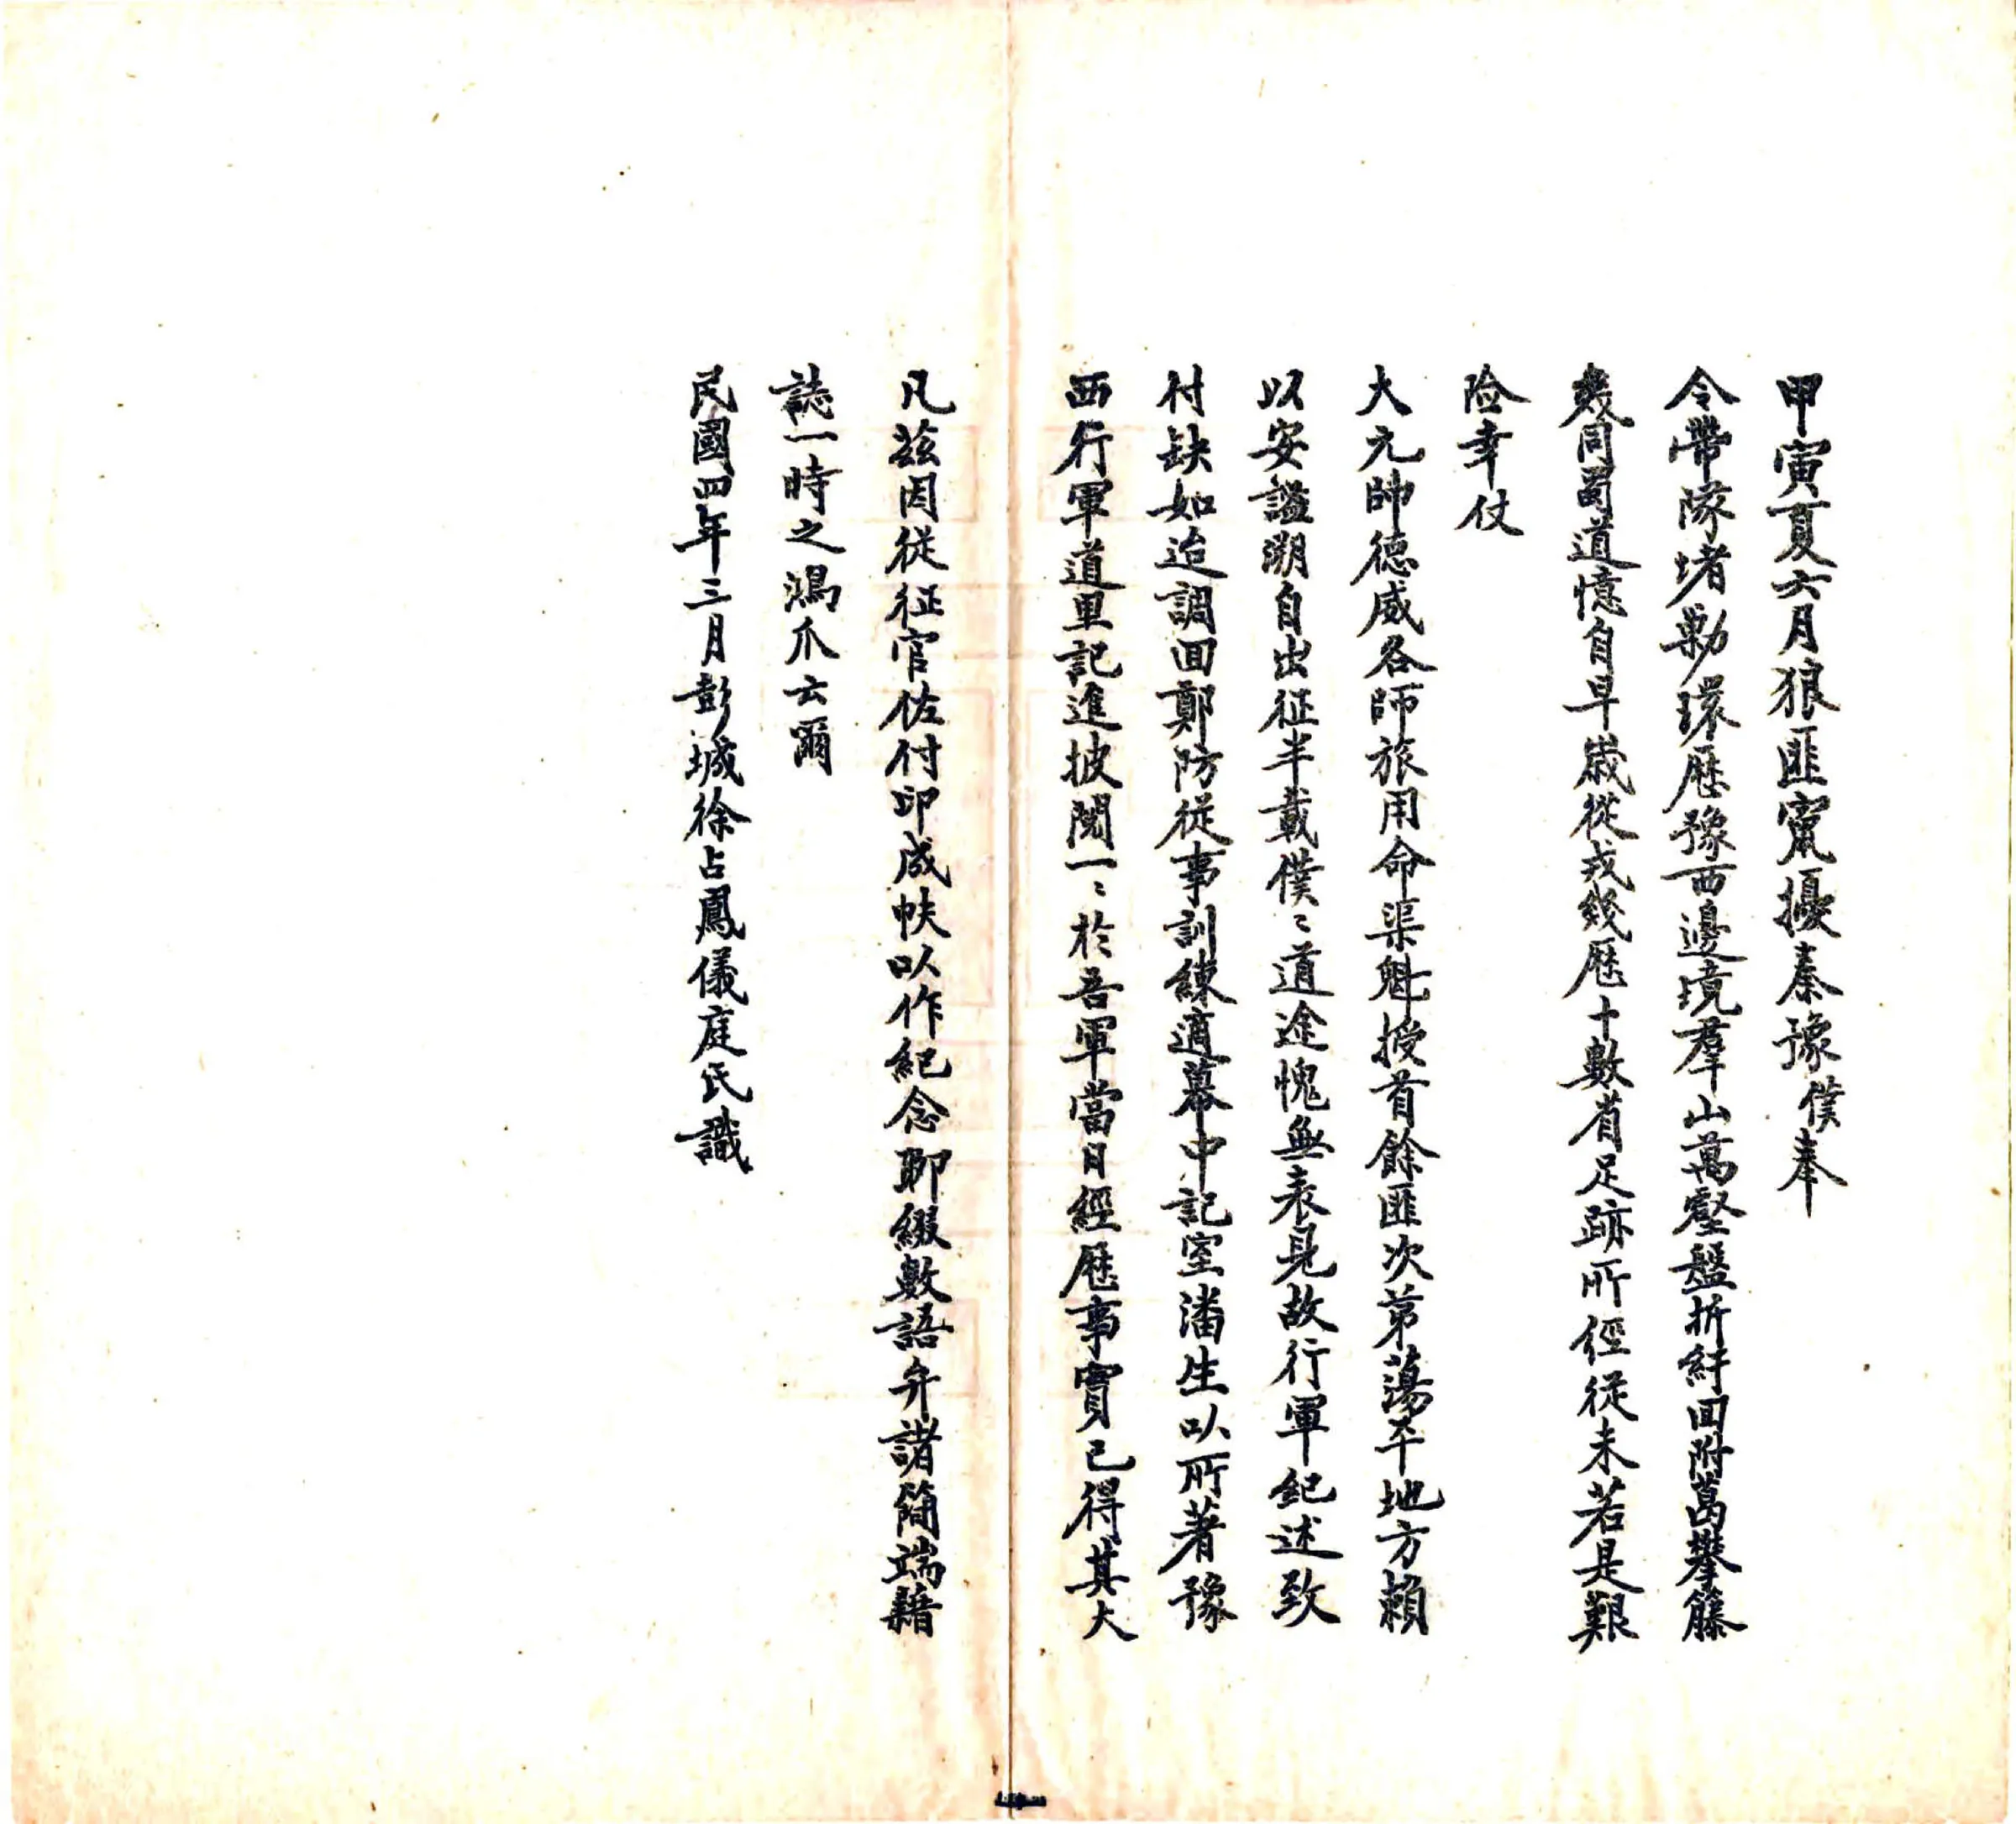 甲寅夏六月狼匪竄擾秦豫僕奉
令帶隊堵勦環歷豫西邊境羣山萬壑盤折紆回附葛攀籐
幾同蜀道憶自早歲從戎幾歷十數省足跡所經從未若是艱
險幸仗
大元帥德威各師旅用命渠魁授首餘匪次第蕩平地方賴
以安謐溯自出征半載僕〻道途愧無表見故行軍紀述致
付缺如迨調回鄭防從事訓練適幕中記室潘生以所著豫
西行軍道里記進披閱一〻於吾軍當日經歷事實已得其大
凡茲因從征官佐付印成帙以作紀念聊綴數語弁諸簡端藉
誌一時之鴻爪云爾
民國四年三月彭城徐占鳳儀庭氏識